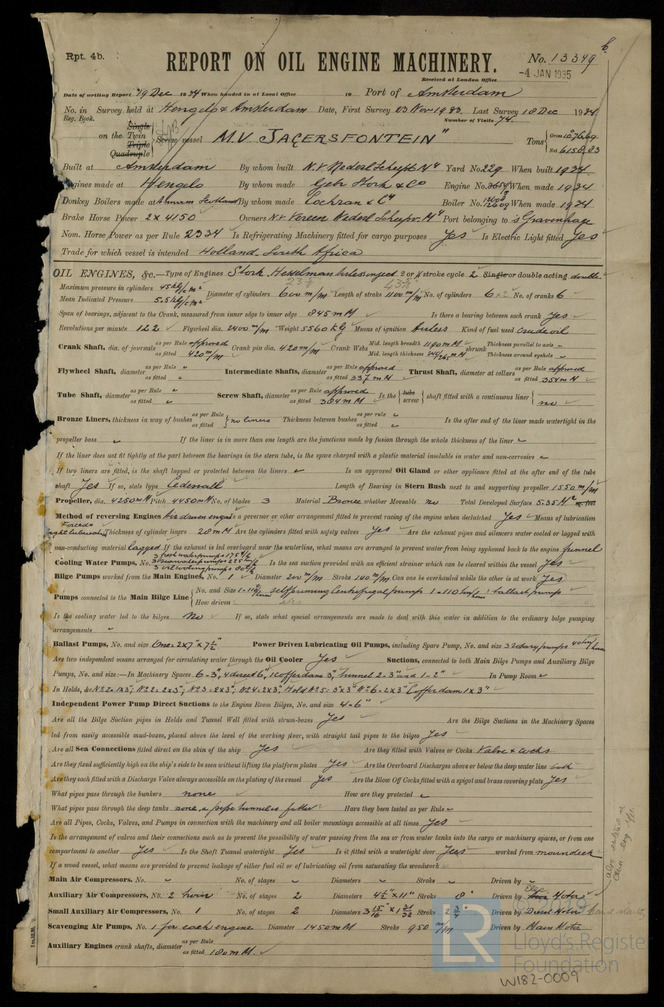 Rpt. 4b.
REPORT ON OIL ENGINE MACHINERY.
No. 13349
Received at London Office
-4 JAN 1935
Date of writing Report 19 Dec 1934 When handed in at Local Office 19 Port of Amsterdam
No. in Survey held at Hengelo & Amsterdam Date, First Survey 23 Nov 1933 Last Survey 18 Dec 1934
Reg. Book. Number of Visits 74
Single
on the Twin Screw vessel M.V. "JAGERSFONTEIN"
Triple
Quadruple
Tons Gross
Net 6158.83
Built at Amsterdam By whom built N.V. Nederl. Scheepsb. My Yard No. 229 When built 1934
Engines made at Hengelo By whom made Gebr. Stork & Co Engine No. When made 1934
Donkey Boilers made at Annan Scotland By whom made Cochran & Co Boiler No. When made 1934
Brake Horse Power 2 x 4150 Owners N.V. Vereen. Nederl. Scheepv. My Port belonging to 's Gravenhage
Nom. Horse Power as per Rule 2334 Is Refrigerating Machinery fitted for cargo purposes Yes Is Electric Light fitted Yes
Trade for which vessel is intended Holland South Africa
OIL ENGINES, &c.—Type of Engines Stork Hesselman 2 or 4 stroke cycle 2 Single or double acting double
Maximum pressure in cylinders 45 kg/cm² Diameter of cylinders 600 m/m Length of stroke 1100 m/m No. of cylinders 6 No. of cranks 6
Mean Indicated Pressure 5.5 kg/cm²
Span of bearings, adjacent to the Crank, measured from inner edge to inner edge 845 m/m Is there a bearing between each crank Yes
Revolutions per minute 122 Flywheel dia. 2400 m/m Weight 5560 KG Means of ignition Airless Kind of fuel used crude oil
Crank Shaft, dia. of journals as per Rule approved as fitted 420 m/m Crank pin dia. 420 m/m Crank Webs Mid. length breadth 1190 m/m Thickness parallel to axis
Mid. length thickness shrunk Thickness around eyehole
Flywheel Shaft, diameter as per Rule as fitted Intermediate Shafts, diameter as per Rule approved as fitted 337 m/m Thrust Shaft, diameter at collars as per Rule approved as fitted 354 m/m
Tube Shaft, diameter as per Rule as fitted Screw Shaft, diameter as per Rule approved as fitted 384 m/m Is the tube screw shaft fitted with a continuous liner no
Bronze Liners, thickness in way of bushes as per Rule as fitted no liners Thickness between bushes as per rule as fitted Is the after end of the liner made watertight in the
propeller boss If the liner is in more than one length are the junctions made by fusion through the whole thickness of the liner
If the liner does not fit tightly at the part between the bearings in the stern tube, is the space charged with a plastic material insoluble in water and non-corrosive
If two liners are fitted, is the shaft lapped or protected between the liners Is an approved Oil Gland or other appliance fitted at the after end of the tube
shaft Yes If so, state type Cedervall Length of Bearing in Stern Bush next to and supporting propeller 1550 m/m
Propeller, dia. 4250 m/m Pitch 4450 m/m No. of blades 3 Material Bronze whether Moveable no Total Developed Surface 5.35 M²
Method of reversing Engines Air driven engine Is a governor or other arrangement fitted to prevent racing of the engine when declutched Yes Means of lubrication
Forced Thickness of cylinder liners 28 m/m Are the cylinders fitted with safety valves Yes Are the exhaust pipes and silencers water cooled or lagged with
non-conducting material lagged If the exhaust is led overboard near the waterline, what means are arranged to prevent water from being syphoned back to the engine funnel
Cooling Water Pumps, No. Is the sea suction provided with an efficient strainer which can be cleared within the vessel Yes
Bilge Pumps worked from the Main Engines, No. 1 Diameter 200 m/m Stroke 140 m/m Can one be overhauled while the other is at work Yes
Pumps connected to the Main Bilge Line No. and Size selfpriming Centrifugal pump ballast pump
How driven
Is the cooling water led to the bilges No If so, state what special arrangements are made to deal with this water in addition to the ordinary bilge pumping
arrangements
Ballast Pumps, No. and size One 2 x 7" x 7½" Power Driven Lubricating Oil Pumps, including Spare Pump, No. and size
Are two independent means arranged for circulating water through the Oil Cooler Yes Suctions, connected to both Main Bilge Pumps and Auxiliary Bilge
Pumps, No. and size:—In Machinery Spaces 6-3", 4 direct 6", 1 Cofferdam 3", Tunnel 2-3" and 1-2" In Pump Room
In Holds, &c. No 1: 1x3", No 2: 2x3", No 3: 2x3", No 4: 2x3" Hold No 5: 3x3" No 6: 2x3" Cofferdam 1x3"
Independent Power Pump Direct Suctions to the Engine Room Bilges, No. and size 4-6"
Are all the Bilge Suction pipes in Holds and Tunnel Well fitted with strum-boxes Yes Are the Bilge Suctions in the Machinery Spaces
led from easily accessible mud-boxes, placed above the level of the working floor, with straight tail pipes to the bilges Yes
Are all Sea Connections fitted direct on the skin of the ship Yes Are they fitted with Valves or Cocks Valve & cocks
Are they fixed sufficiently high on the ship's side to be seen without lifting the platform plates Yes Are the Overboard Discharges above or below the deep water line both
Are they each fitted with a Discharge Valve always accessible on the plating of the vessel Yes Are the Blow Off Cocks fitted with a spigot and brass covering plate Yes
What pipes pass through the bunkers none How are they protected
What pipes pass through the deep tanks none, a pipe tunnel is fitted Have they been tested as per Rule
Are all Pipes, Cocks, Valves, and Pumps in connection with the machinery and all boiler mountings accessible at all times Yes
Is the arrangement of valves and their connections such as to prevent the possibility of water passing from the sea or from water tanks into the cargo or machinery spaces, or from one
compartment to another Yes Is the Shaft Tunnel watertight Yes Is it fitted with a watertight door Yes worked from maindeck
If a wood vessel, what means are provided to prevent leakage either fuel oil or of lubricating oil from saturating the woodwork
Main Air Compressors, No. No. of stages Diameters Stroke Driven by
Auxiliary Air Compressors, No. 2 No. of stages 2 Diameters 4½" x 11" Stroke 8" Driven by Motor
Small Auxiliary Air Compressors, No. 1 No. of stages 2 Diameters Stroke Driven by Diesel Motor
Scavenging Air Pumps, No. 1 for each engine Diameter 1450 m/m Stroke 950 m/m Driven by Main Motor
Auxiliary Engines crank shafts, diameter as per Rule as fitted 180 m/m
LR
Lloyd's Register
Foundation
W182-0009